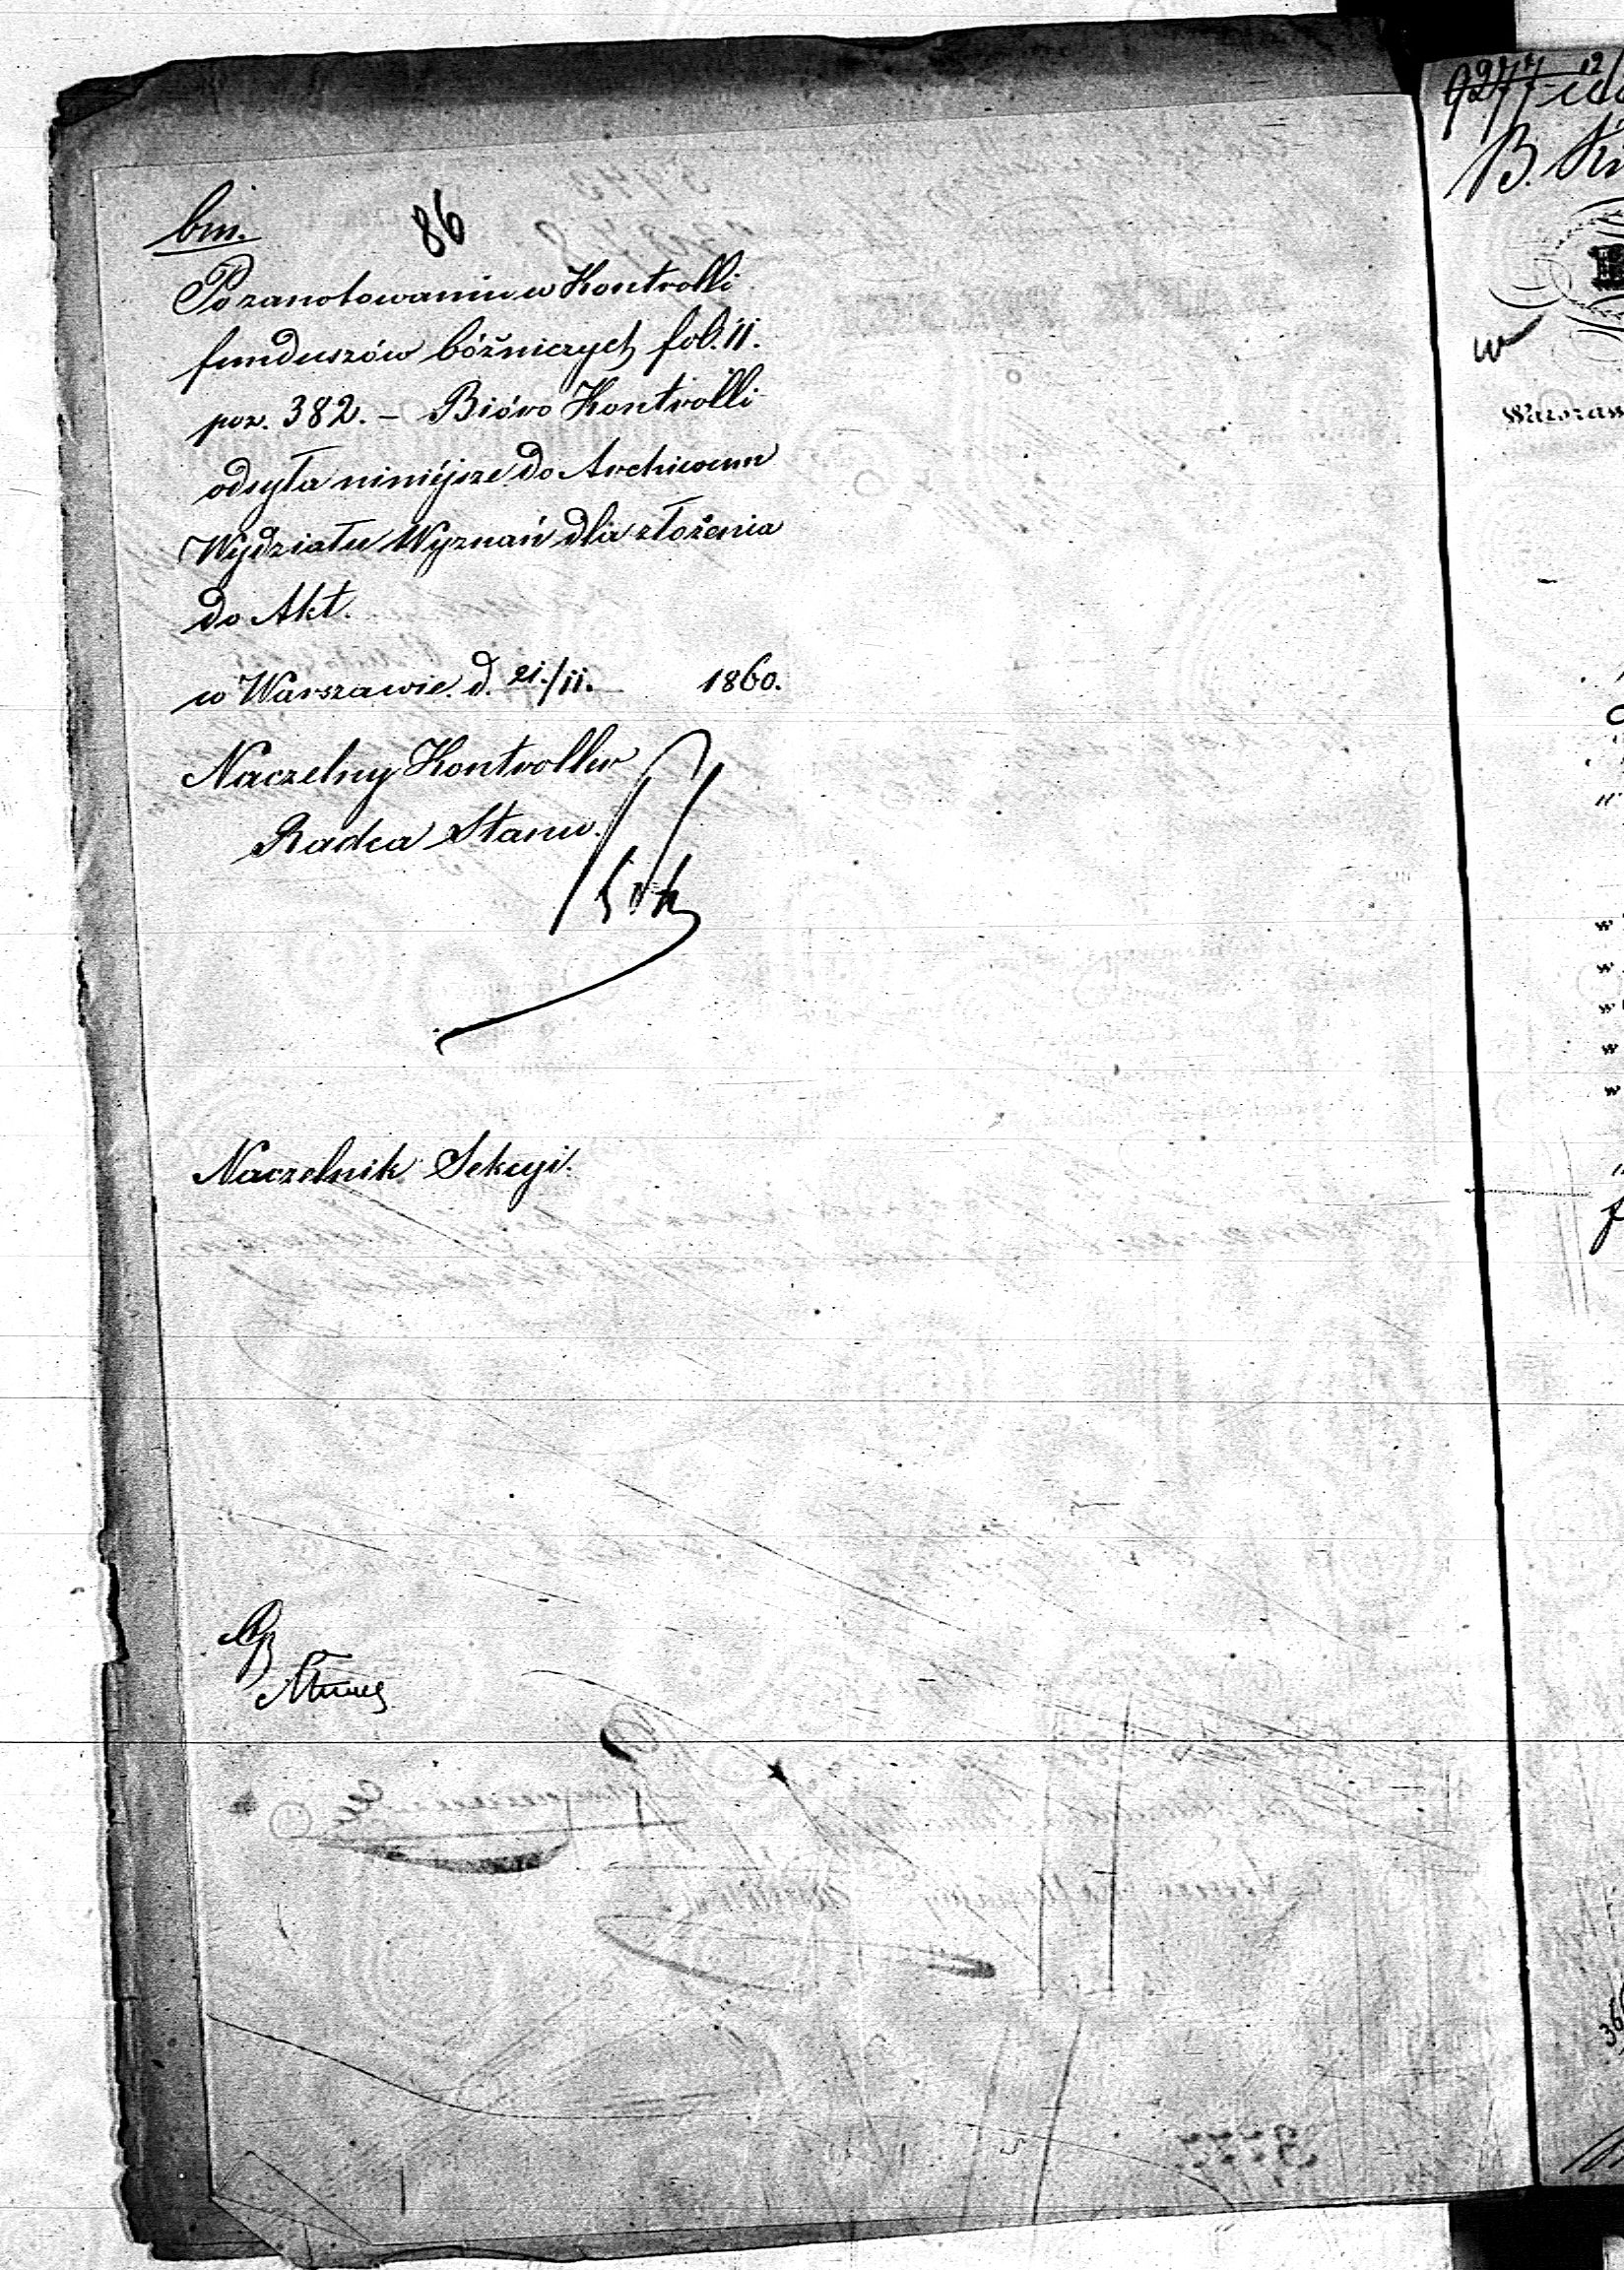 bm.
86
Po zanotowaniu w Kontrolli
funduszów bóżniczych fol. 11.
poz. 382. – Bióro Kontrolli
odsyła niniéjsze do Archiwum
Wydziału Wyznań dla złożenia
do Akt.
w Warszawie. d. 21./11. 1860.
Naczelny Kontroller
Radca Stanu.
Naczelnik Sekcyi.
9277
B.
w